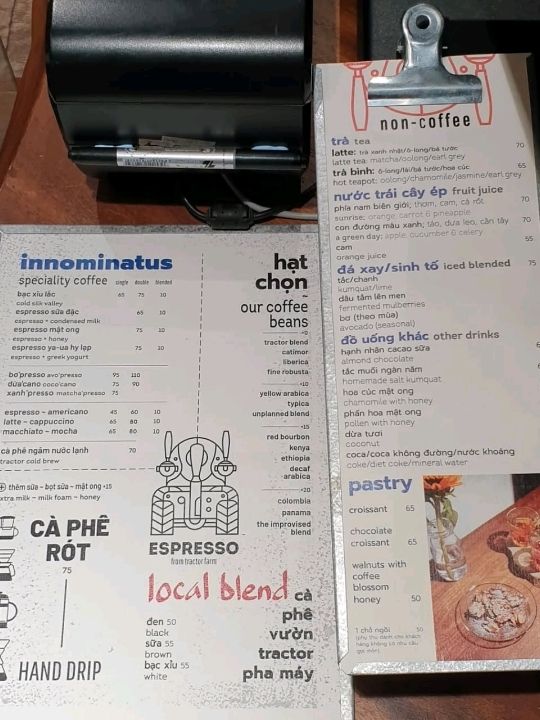 innominatus
speciality coffee single double blended
bạc xíu lắc 65 75 10
cold silk valley
espresso sữa đặc 65 10
espresso + condensed milk
espresso mật ong 75 10
espresso + honey
espresso ya-ua hy lạp 75 10
espresso + greek yogurt
bơ'presso avo'presso 95 110
dừa'cano coco'cano 75 90
xanh'presso matcha'presso 75
espresso - americano 45 60 10
latte - cappuccino 65 80 10
macchiato - mocha 65 80 10
cà phê ngâm nước lạnh 70
tractor cold brew
thêm sữa - bọt sữa - mật ong +15
extra milk - milk foam - honey
CÀ PHÊ
RÓT
75
HAND DRIP
hạt
chọn
~
our coffee
beans
+0
tractor blend
catimor
liberica
fine robusta
+10
yellow arabica
typica
unplanned blend
+15
red bourbon
kenya
ethiopia
decaf
arabica
+20
colombia
panama
the improvised
blend
ESPRESSO
from tractor farm
local blend
cà
phê
vườn
tractor
pha máy
đen 50
black
sữa 55
brown
bạc xỉu 55
white
non-coffee
trà tea
latte: trà xanh nhật/ô-long/bá tước 70
latte tea: matcha/oolong/earl grey
trà bình: ô-long/lài/bá tước/hoa cúc 65
hot teapot: oolong/chamomile/jasmine/earl grey
nước trái cây ép fruit juice
phía nam biên giới; thơm, cam, cà rốt 70
sunrise: orange, carrot & pineapple
con đường màu xanh; táo, dưa leo, cần tây 70
a green day: apple, cucumber & celery
cam 55
orange juice
đá xay/sinh tố iced blended 75
tắc/chanh
kumquat/lime
dâu tằm lên men
fermented mulberries
bơ (theo mùa)
avocado (seasonal)
đồ uống khác other drinks
hạnh nhân cacao sữa
almond chocolate
tắc muối ngàn năm
homemade salt kumquat
hoa cúc mật ong
chamomile with honey
phấn hoa mật ong
pollen with honey
dừa tươi
coconut
coca/coca không đường/nước khoáng
coke/diet coke/mineral water
pastry
croissant 65
chocolate
croissant 65
walnuts with
coffee
blossom
honey 50
1 chỗ ngồi 50
(phụ thu dành cho khách
hàng không có nhu cầu
gọi món)